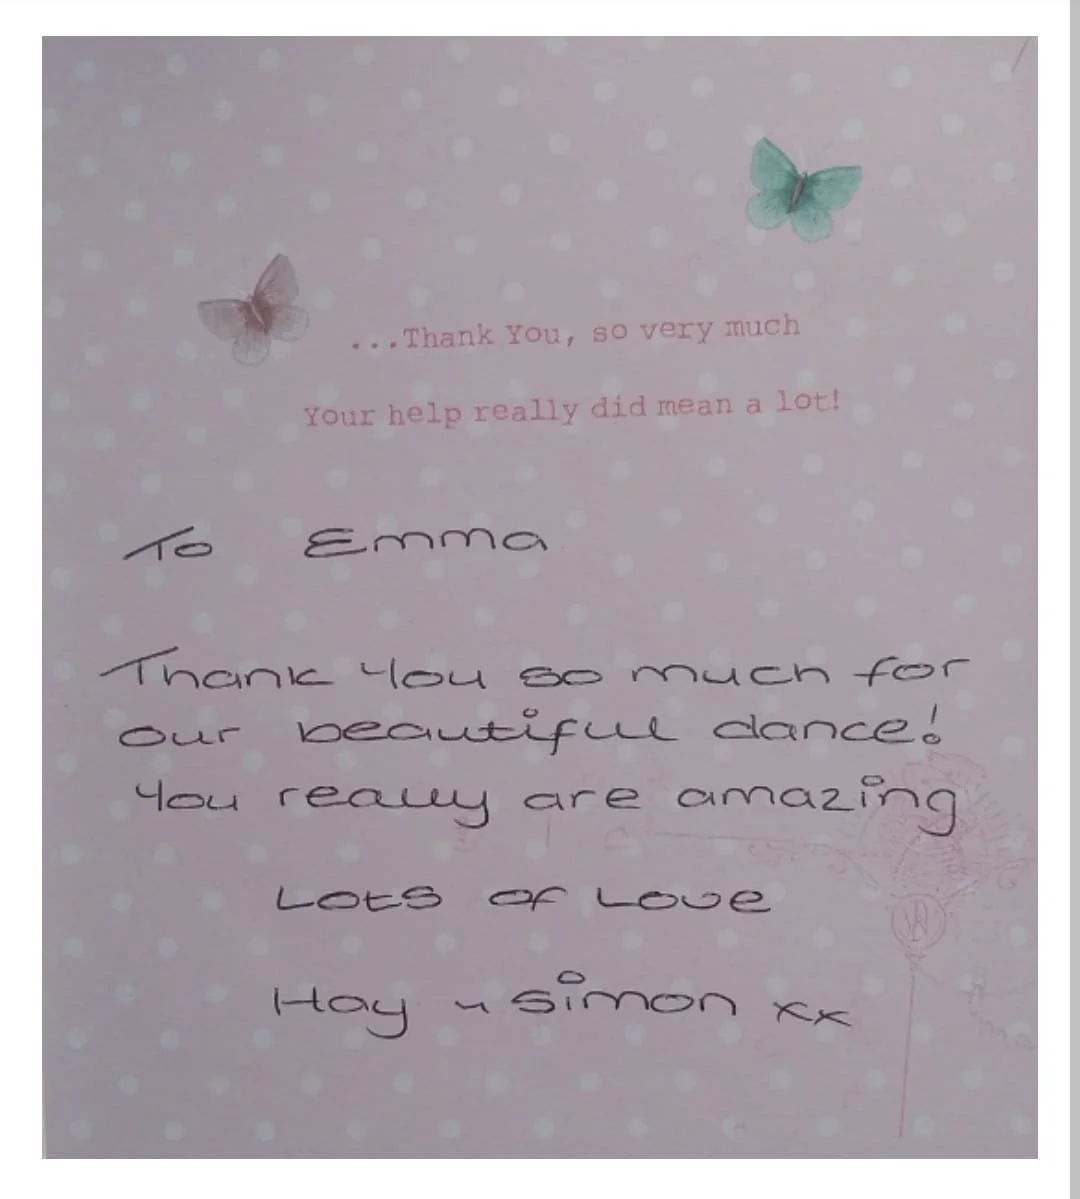 ...Thank You, so very much
Your help really did mean a lot!
To Emma
Thank You so much for
our beautiful dance!
You really are amazing
Lots of Love
Hay & Simon xx